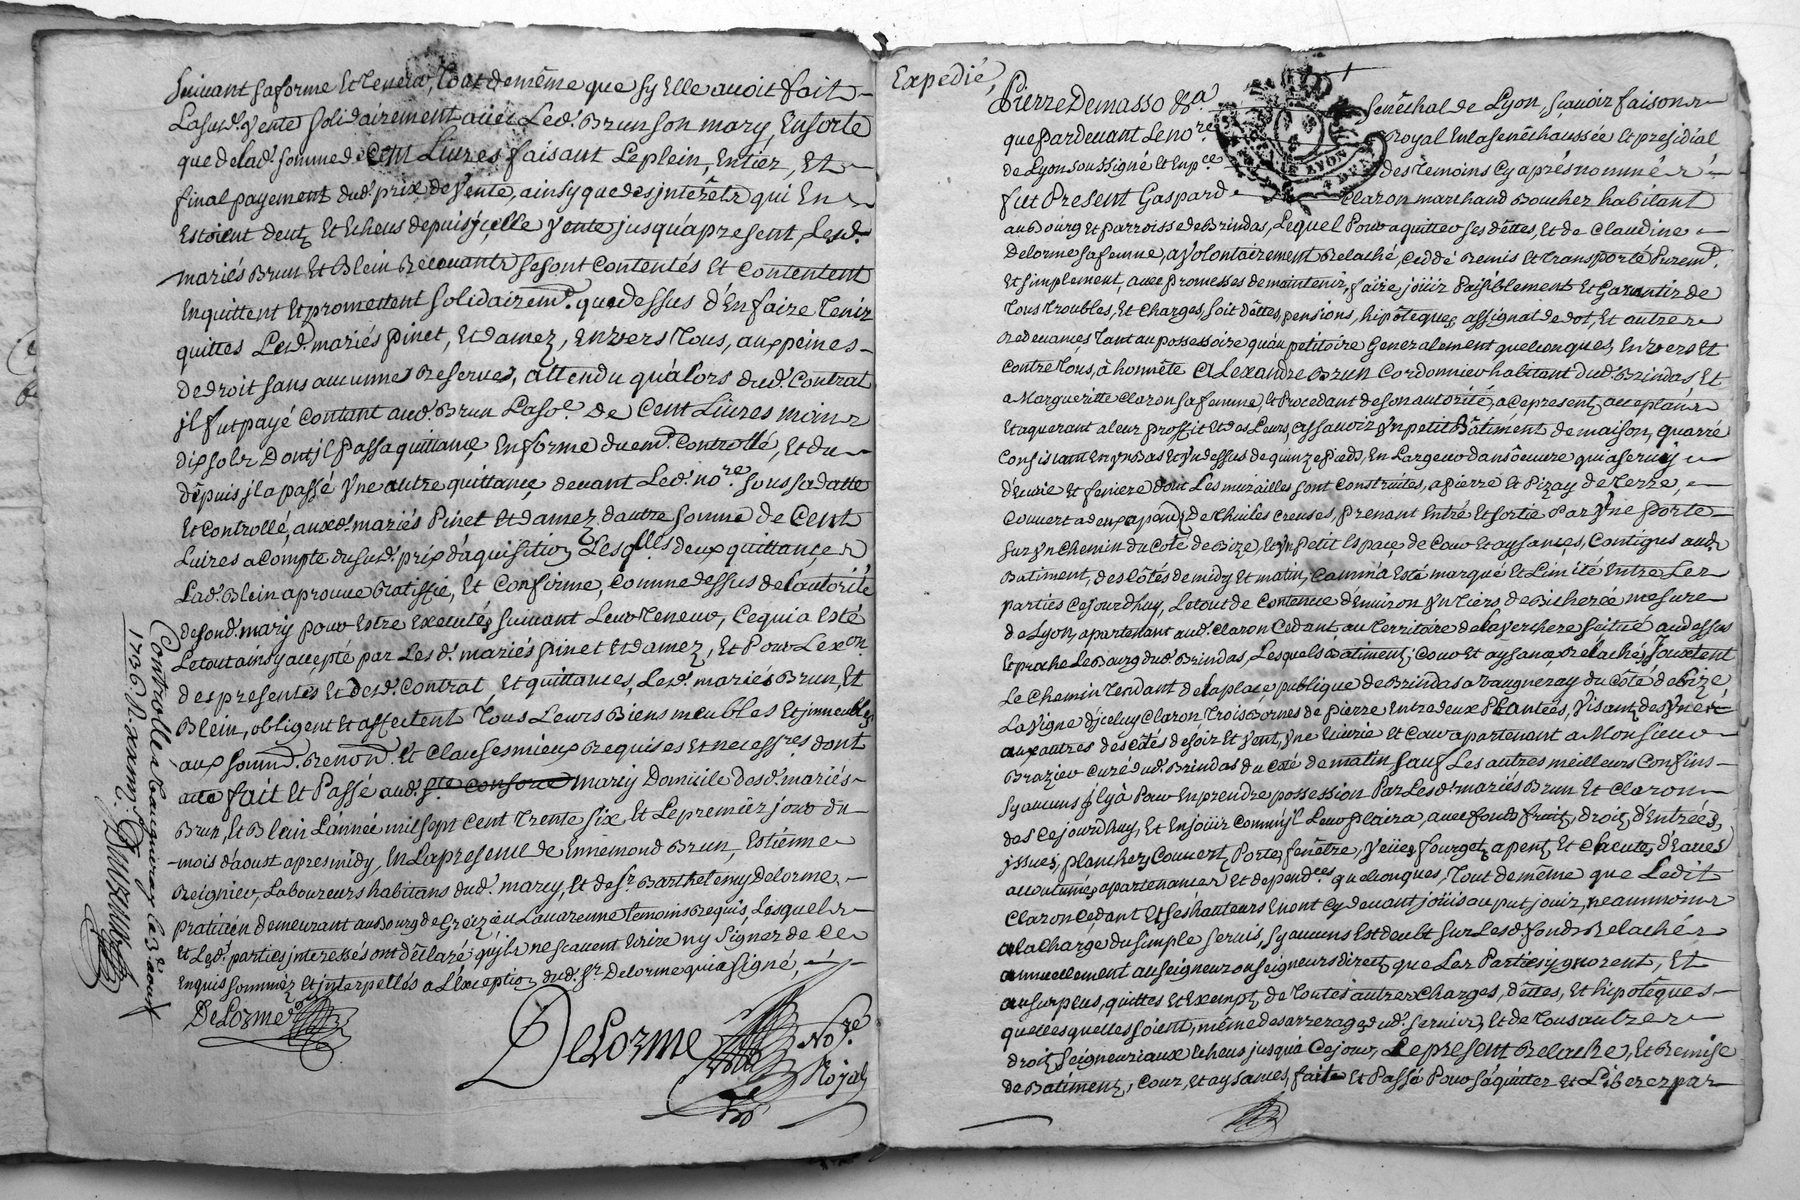 Suivant sa forme Et Teneur, Tout de même que sy Elle auoit fait
La susd. Vente solidairement auec Led. Brun son mary, En sorte
que de lad. somme de Cent Liures faisant Le plein, Entier, Et
final payement dud. prix de Vente, ainsy que des jnterêtz qui En
Estoient deutz Et Echeus depuis jcelle Vente jusqu'à present, Lesd.
mariés Brun Et Blein Receuants se sont contentés Et Contentent
En quittent Et promettent solidairemt. que dessus d'En faire Tenir
quittes Lesd. mariés Pinet, Et damez, Enuers Tous, aux peines
de droit sans aucunnes Reserues, attendu qu'alors dud. Contrat
jl fut payé contant aud. Brun La soe. de Cent Liures moins
dix sols Dont jl Passa quittance En forme duemt. Controllé, Et du
dépuis jl a passé Vne autre quittance deuant Led. nore. sous sa datte
Et Controllé, auxd. mariés Pinet Et damez d'autre somme de Cent
Luires a Compte dusud. prix d'aquisition, Lesqlles deux quittances
Lad. Blein aprouue Ratiffie, Et Confirme, Comme dessus de L'autorité
de sond. mary pour Estre Executés suiuant Leur Teneur, Ce qui a Esté
Le tout ainsy accepté par Lesd. mariés Pinet Et damez, Et Pour L'exon.
des presentes Et desd. Contrat, Et quittances, Lesd. mariés Brun, Et
Blein, obligent Et affectent Tous Leurs Biens meubles Et jmmeubles
aux soumd. Renond. Et Clauses mieux Requises Et necessres dont
acte fait Et Passé aud. ste Consorce marcy Domicile desd. mariés
Brun, Et Blein L'année mil sept Cent Trente six Et Le premier jour du
mois d'aoust apres midy, En La presence de Ennemond Brun, Estienne
Reignier, Laboureurs habitans dud. marcy, Et de sr. Barthelemy Delorme
praticien demeurant au Bourg de Grézieu Lauarenne temoins Requis, Lesquels
Et Lesd. parties jnteressés ont déclaré qu'ils ne scauent Ecrire ny Signer de Ce
Enquis sommez Et jnterpellés a L'Exception dud. sr. Delorme qui a signé,
DeLorme
DeLorme
Nore.
Royal
Controllé à Vaugneray le 3e aoust
1736
Expedié,
Pierre Demasso &a
Senêchal de Lyon, sçauoir faisons
que pardeuant Le nore
Royal En la senêchaussée Et presidial
de Lyon soussigné Et En pce
des Temoins Cy aprés nommés
fut Present Gaspard
Claron marchand Boucher habitant
au Bourg Et parroisse de Brindas, Lequel Pour aquitter ses dêttes, Et de Claudine
Delorme sa femme, a Volontairement Relaché, Ceddé Remis Et Transporté Puremt.
Et simplement, auec promesses de maintenir, faire jouir Paisiblement Et Garantir de
Tous Troubles, Et Charges, soit dêttes, pensions, hipotêques, assignat de dot, Et autres
Redeuances Tant au possessoire qu'au petitoire Generalement quelconques, Enuers Et
Contre Tous, à honnête Alexandre Brun Cordonnier habitant dud. Brindas, Et
a Margueritte Claron sa femme, Et Procedant de son autorité, a Ce presents acceptants
Et aquerant a leur proffit Et des Leurs, assauoir Vn petit Bâtiment de maison, quarré
Consistant En Vn Bas Et Vn dessus de quinze Pieds, En Largeur dans oeuure qui a seruy
d'Ecurie Et feniere dont Les murailles sont construites, a pierre Et Pizay de Terre,
Couuert a deux apendz de Thuiles Creuses, prenant Entré Et sortie Par Vne Porte
sur Vn Chemin du Coté de Bize, Et Vn Petit Espace de Cour Et aysances, Contigues aud.
Batiment, des Côtés de midy Et matin, Comm'a Esté marqué Et Limité Entre Les
parties Ce jourd'huy, Le tout de Contenue d'Enuiron Vn Tiers de Bicherée mesure
de Lyon, apartenant aud. Claron Cedant, au Territoire de la Verchere situé au dessus
Et proche Le Bourg dud. Brindas, Lesquels Batiment, Cour Et aysances Relachés, Jouxtent
Le Chemin Tendant de la place publique de Brindas a Vaugneray du Côté de bize
La Vigne d'jceluy Claron Trois Bornes de pierre Entre deux Plantées, Visant des Vnes
aux autres des Cotés de soir Et Vent, Vne Ecurie Et Cour apartenant a Monsieur
Brazier Curé dud. Brindas du Coté de matin sauf Les autres meilleurs Confins
sy aucuns jl y a Pour En prendre possession Par Lesd. mariés Brun Et Claron
des Ce jourd'huy, Et En jouir Comm'jl Leur Plaira, auec fonds, fruits, droits d'Entrées,
jssues, planchers, Couuert, Portes, fenêtre, Veües, Egoutz, apentz Et Cheutes d'Eaues
accoutumés, apartenances Et dependces. quelconques, Tout de même que Ledit
Claron Cedant Et Ses hauteurs En ont Cy deuant jouis ou put jouir, neanmoins
a la Charge du simple seruis, sy aucuns Est deubt sur Lesd. fonds Relachés
annuellement au seigneur ou seigneurs directs que Les Parties ignorent, Et
au surplus, quittes Et Exempts de Toutes autres Charges, dêttes, Et hipotêques
quelles quelles soient, même des arrerages dud. seruis, Et de Tous autres
droits seigneuriaux Echeus jusqu'a Ce jour, Le present Relache, Et Remise
de Batiment, Cour, Et aysances, faite Et Passé Pour s'aquitter Et Liberer par